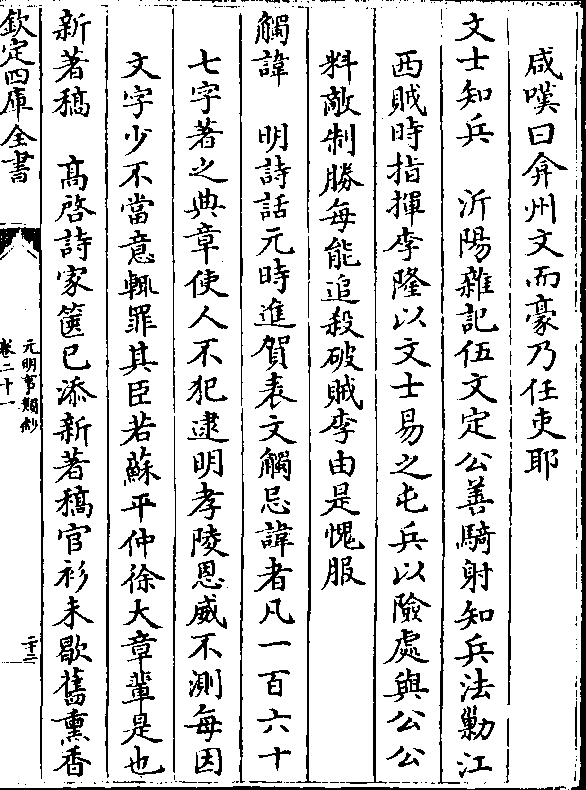 咸嘆曰弇州文而豪乃任吏耶
文士知兵　沂陽雜記伍文定公善騎射知兵法勦江
西賊時指揮李隆以文士易之屯兵以險處與公公
料敵制勝每能追殺破賊李由是愧服
觸諱　明詩話元時進賀表文觸忌諱者凡一百六十
七字著之典章使人不犯逮明孝陵恩威不測每因
文字少不當意輒罪其臣若蘇平仲徐大章輩是也
新著稿　髙啓詩家篋已添新著稿官衫未歇舊熏香
欽定四庫全書
元明事類鈔
卷二十一
二十二